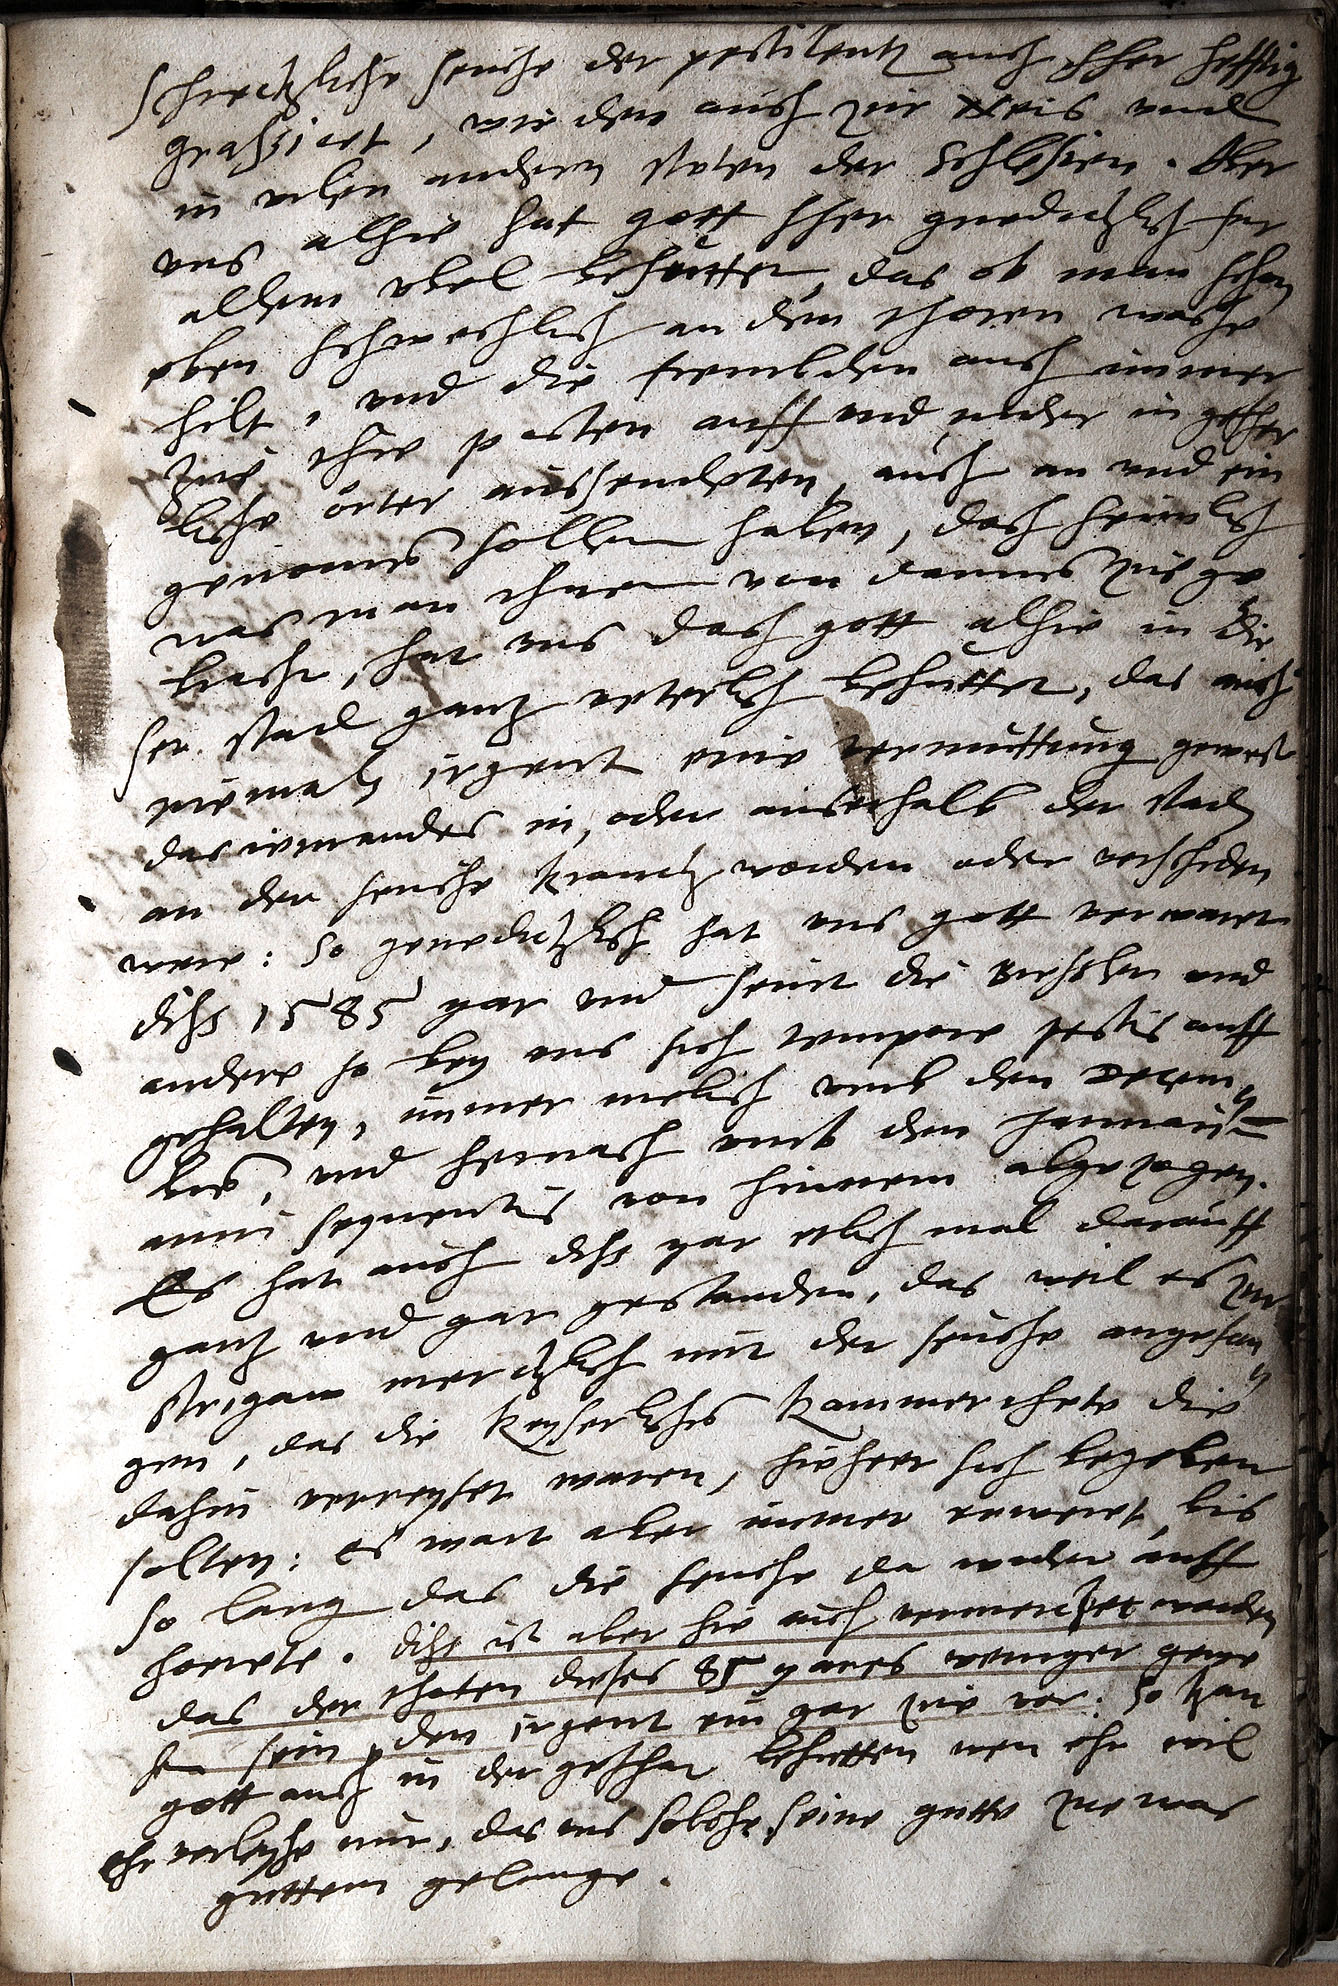 schreckliche seuche der pestilentz auch sher hefftig
grassiert, wie den auch zur Neis vnd
in vilen andern steten der Schlesien. Aber
vns alhie hat gott sher gnediglich fur
allem vbel behuttet, das ob man schon
eben schwechlich an den thoren wache
hilt, vnd die frembden auch immer
zue ihre posten auff vnd nider in gefher
liche örter aussendeten, auch an vnd ein
genomen sollen haben, doch heimlich
was man ihnen von dannen zue ge
bracht, hat vns doch gott alhie in die
ser stad gantz veterlich behuttet, das auch
niemals irgent eine vermuttung gewest
das iemandes in, oder ausserhalb der stad
an der seuche kranck worden oder verschiden
were: So genediglich hat vns gott verwaret
diss 1585 yar vnd seint die Bressler vnd
andere so bey vns sich tempore pestis auff
gehalten, immer melich vmb den Decem
ber, vnd hernach vmb den Januarium
anni sequentis von hinnen abgezogen.
Es hat auch diss yar etlich mal darauff
gantz vnd gar gestanden, das weil es zur
Strigaw mercklich mit der seuche angefan
gen, das die Keyserlichen Kammerrhete die
dahin verreyset waren, hieher sich begeben
solten: es wart aber immer verwert, bis
so lang das die seuche da wider auff
horete. Diss ist aber hie auch vermercket worden
das der thoten dieses 85 yares weniger gewe
sen sein, den irgent ein yar zue vor: So kan
gott auch in der gefhar behutten wen ehr wil
Ehr verleyhe nur, das vns solche seine gutte zue was
guttem gelange.